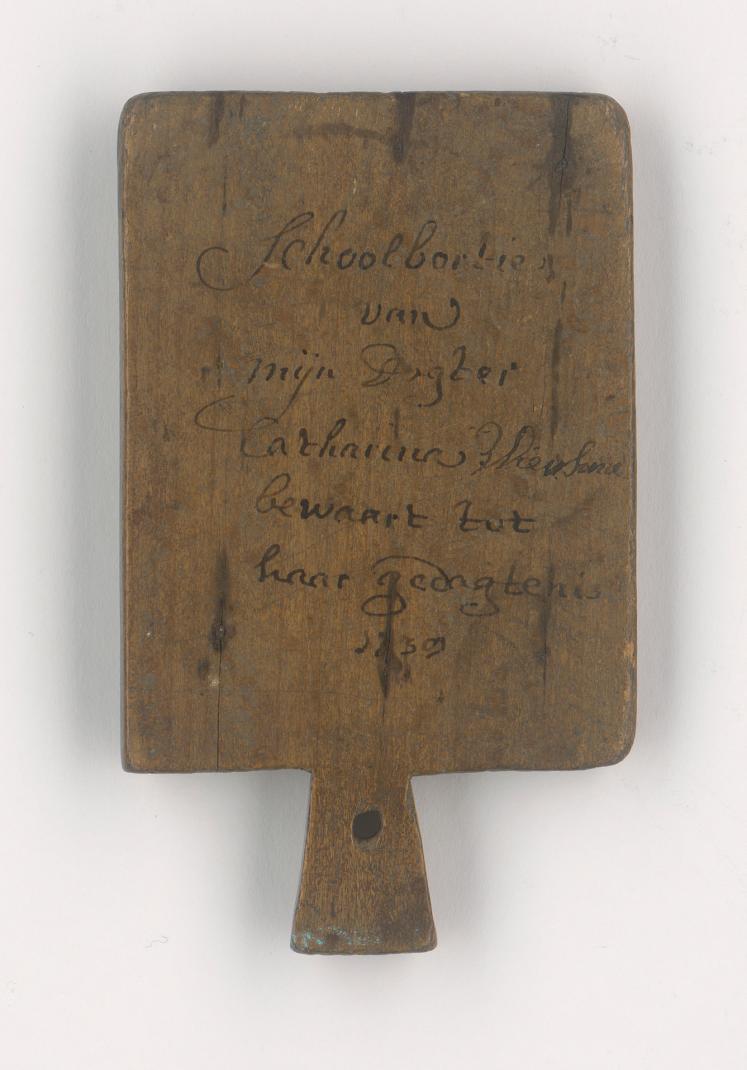 Schoolbortie
van
mijn Dogter
Catharina
bewaart tot
haar gedagtenis
1739